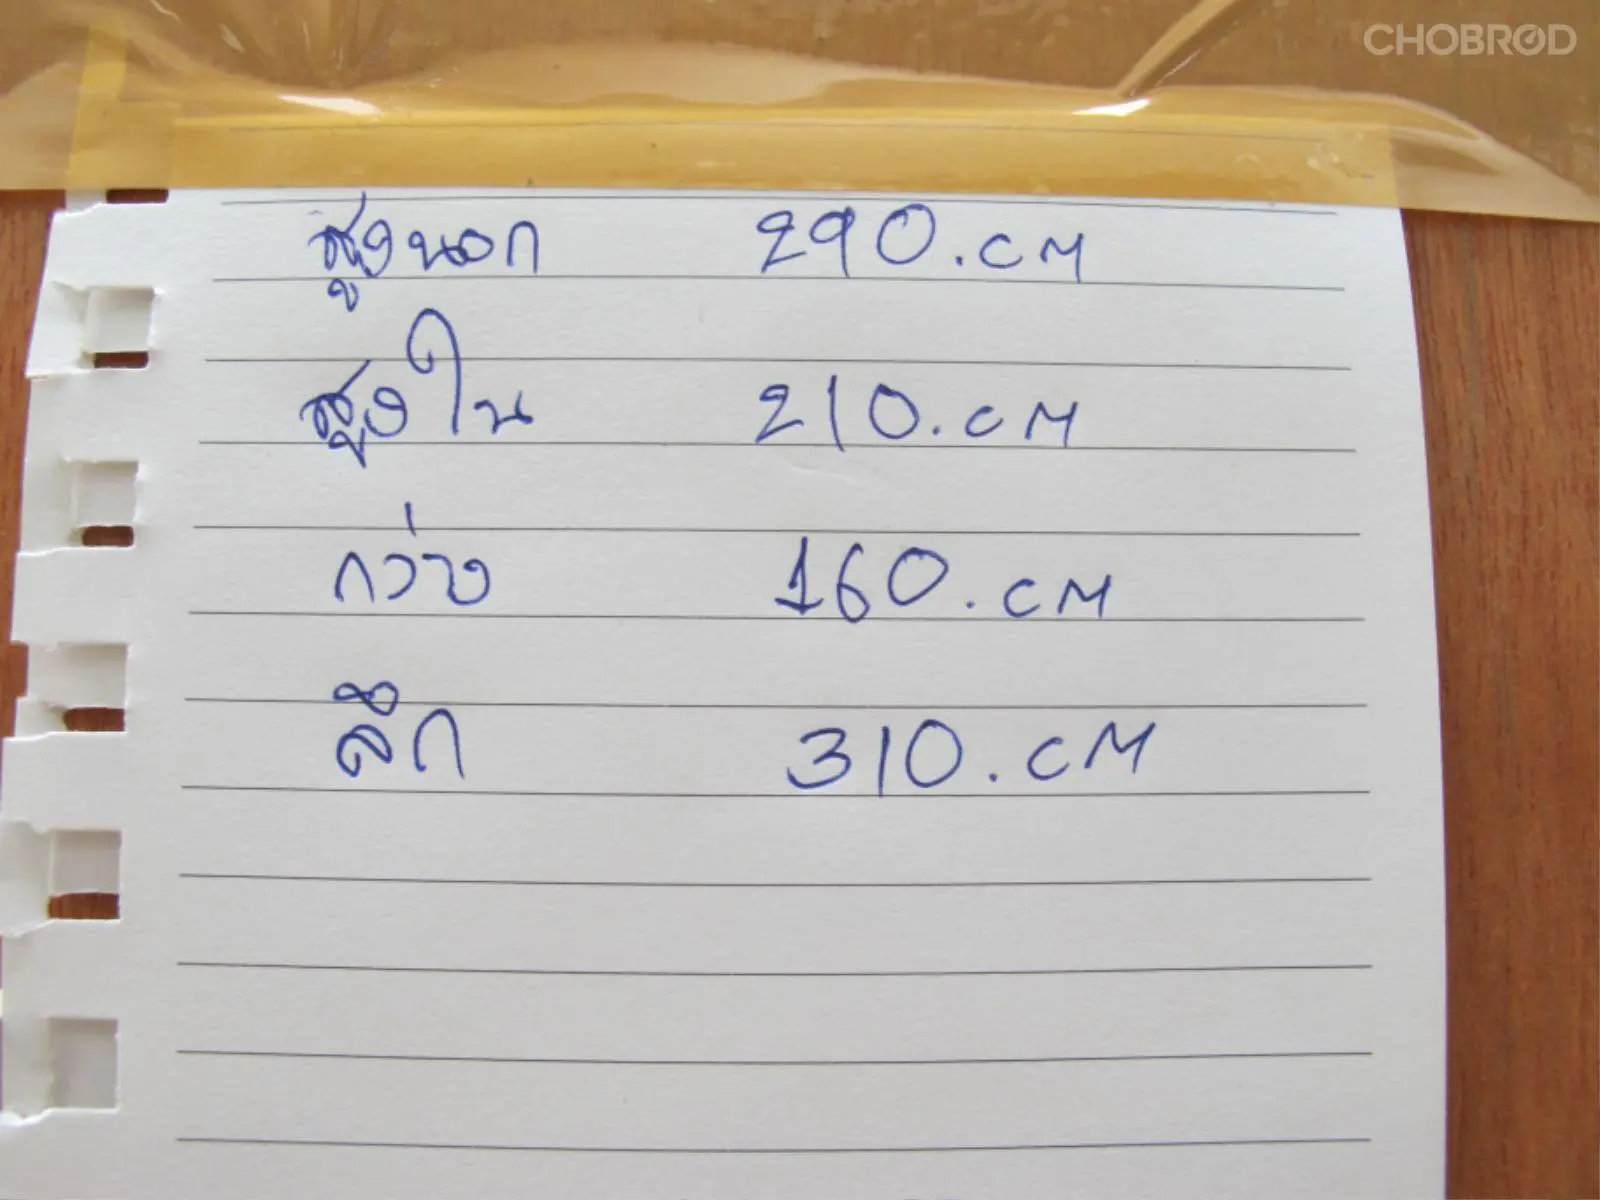 CHOBROD
สูงนอก 290.CM
สูงใน 210.CM
กว่าง 160.CM
ลึก 310.CM